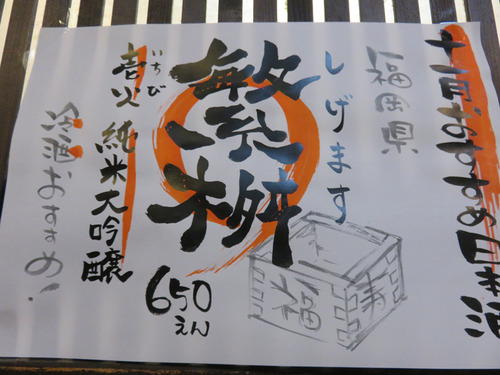 十一月おすすめ日本酒
福岡県
しげます
繁桝
いちび
壱火 純米大吟醸
650えん
冷酒おすすめ!
福
寿